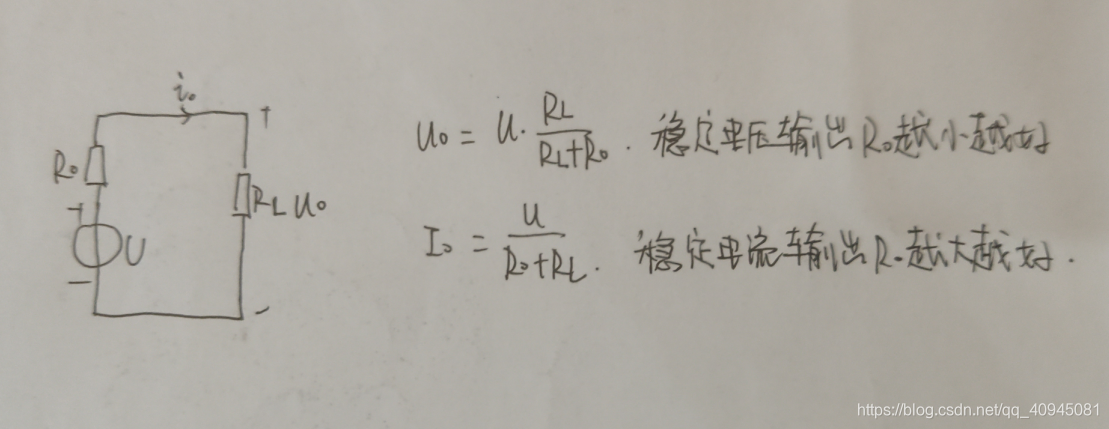 i₀
+
R₀
+
U
−
R_L U₀
−
U₀ = U · R_L / (R_L+R₀) . 稳定电压输出R₀越小越好
I₀ = U / (R₀+R_L) . 稳定电流输出R₀越大越好.
https://blog.csdn.net/qq_40945081